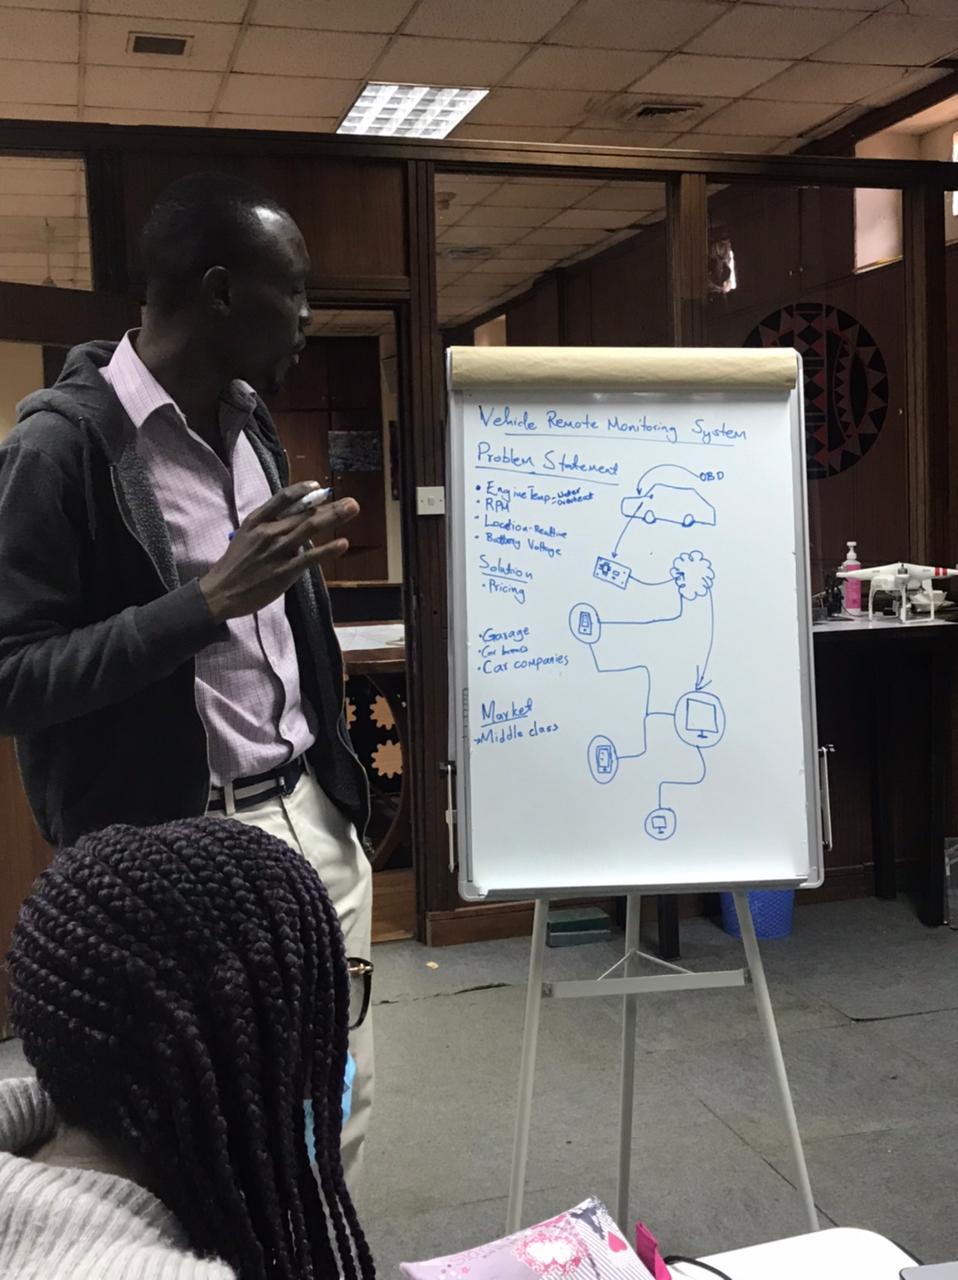 Vehicle Remote Monitoring System
Problem Statement
• Engine Temp - Water
- Overheat
• RPM
• Location - Realtime
• Battery Voltage
OBD
Solution
• Pricing
• Garage
• Car
• Car companies
Market
→ Middle class